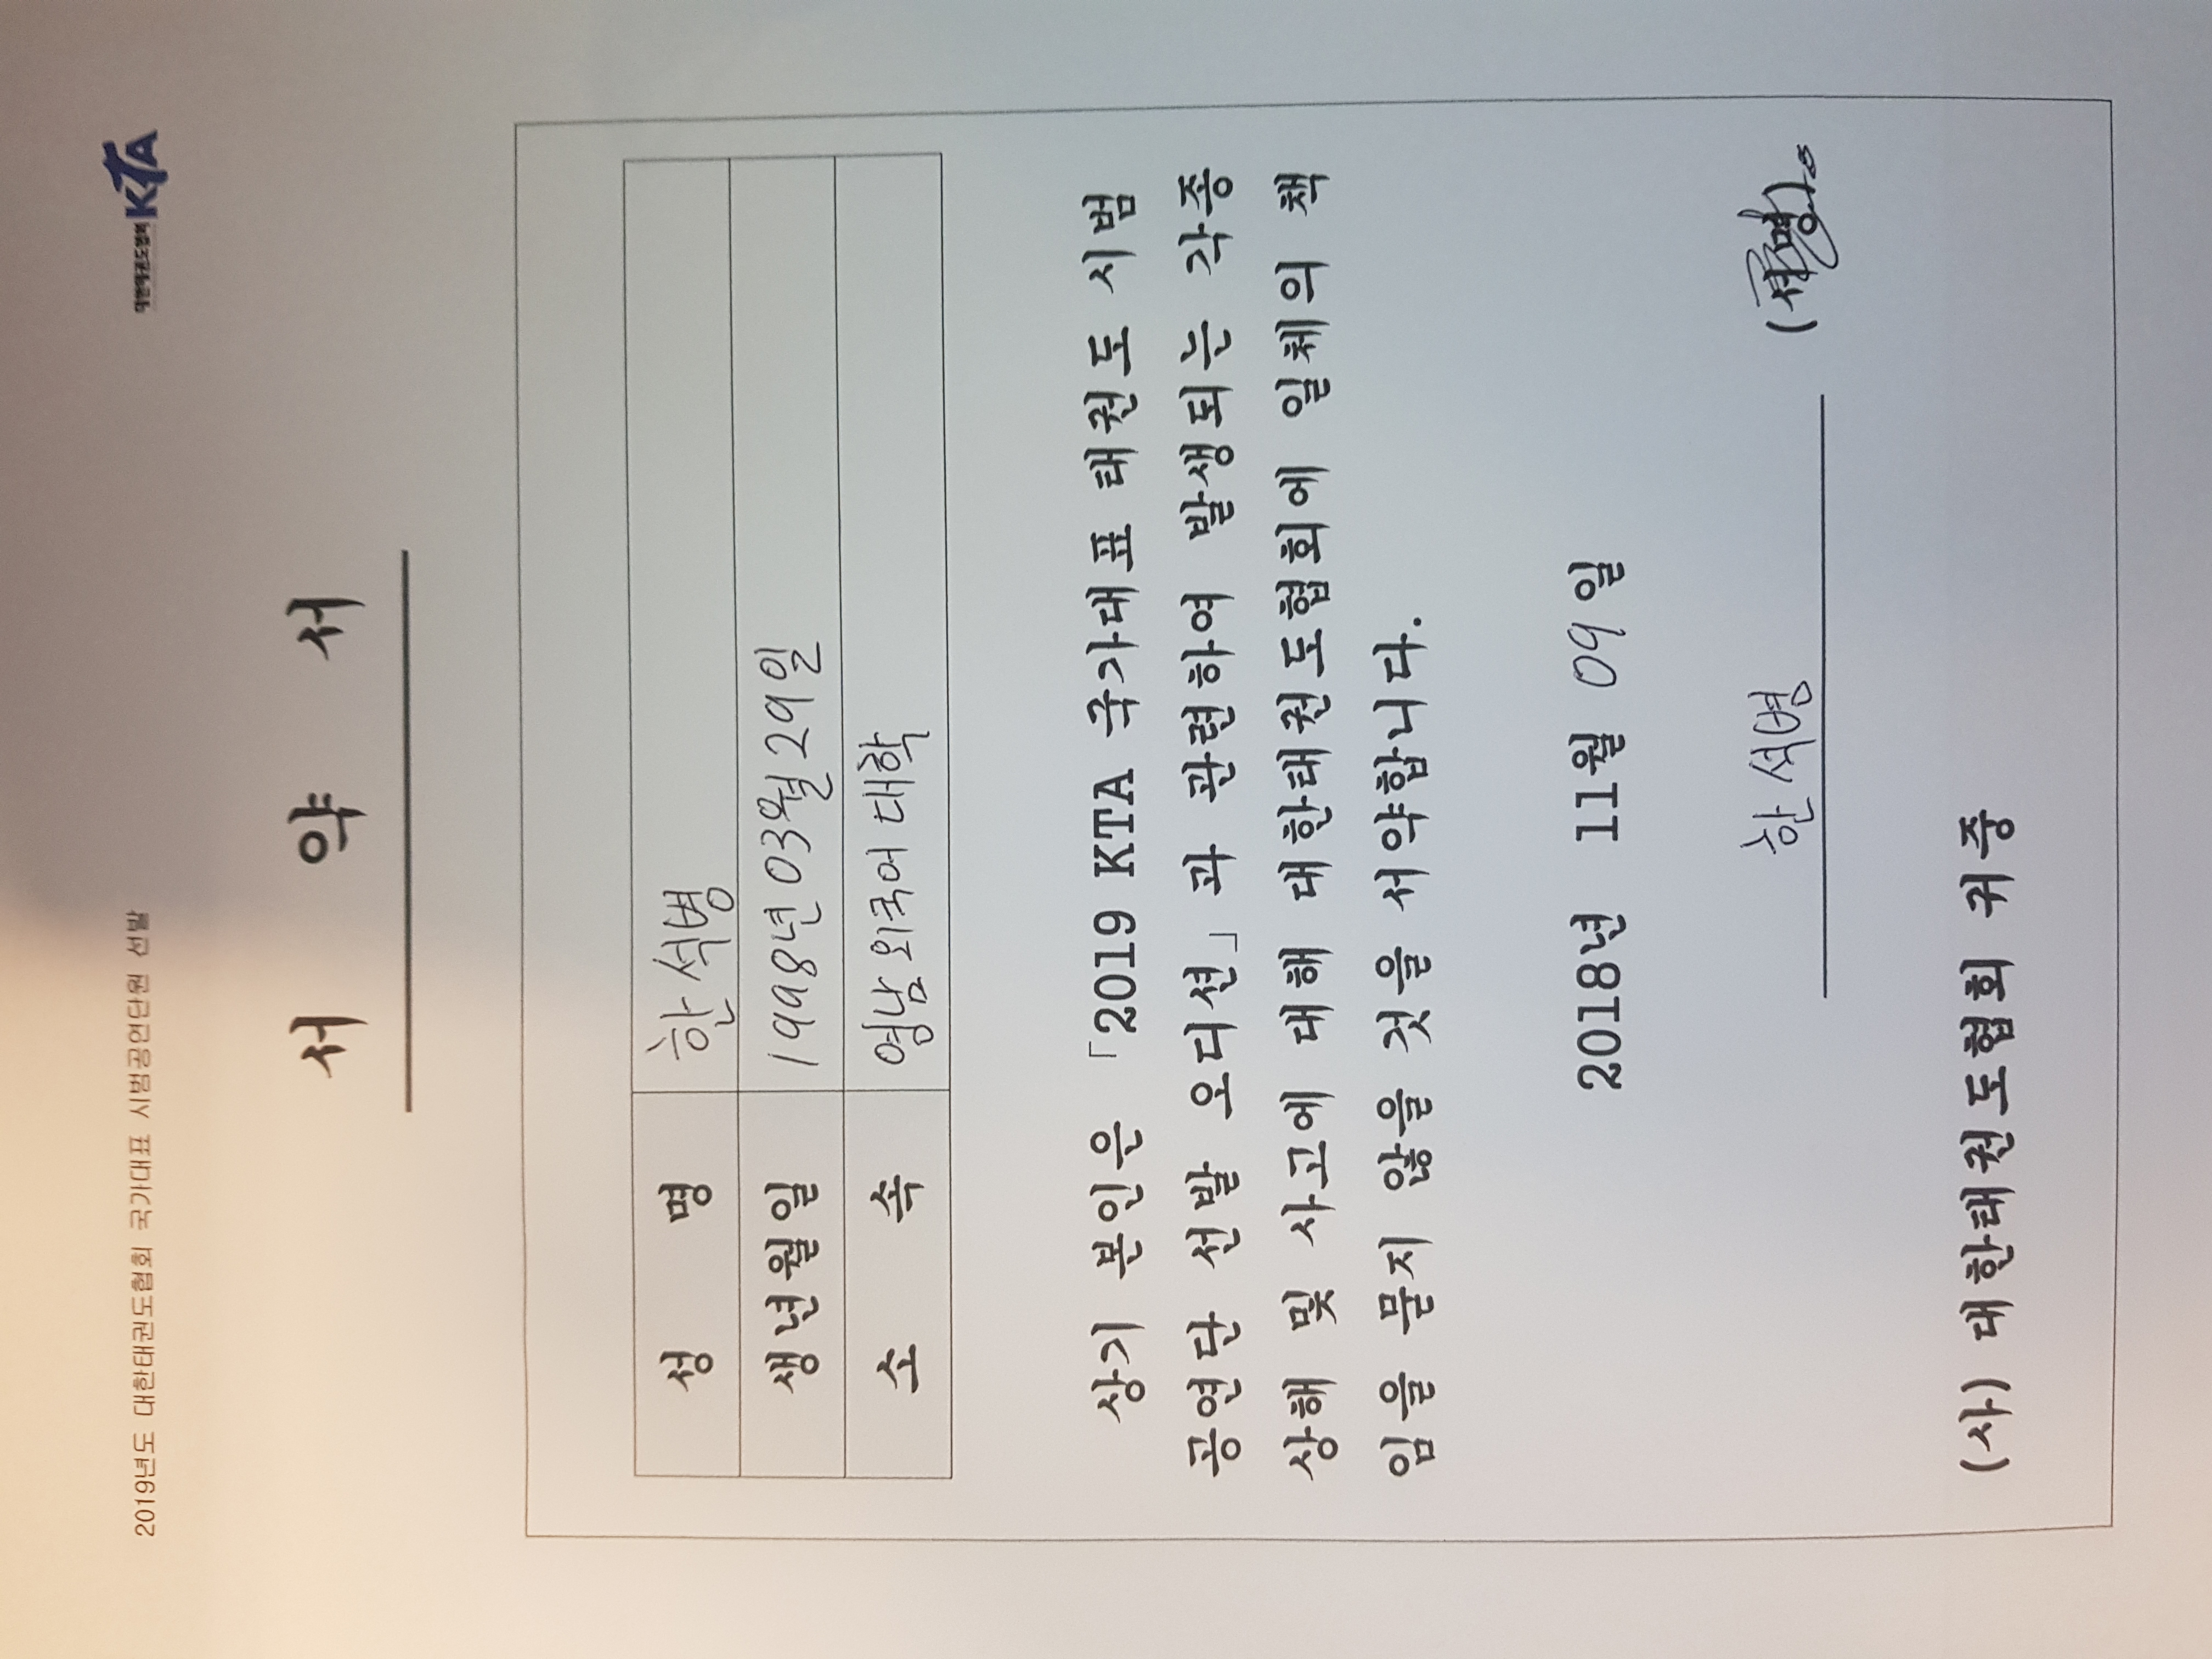 2019년도 대한태권도협회 국가대표 시범공연단원 선발
대한태권도협회 KTA
서 약 서
성 명 한석병
생년월일 1998년 03월 29일
소 속 영남외국어대학
상기 본인은 「2019 KTA 국가대표 태권도 시범
공연단 선발 오디션」과 관련하여 발생되는 각종
상해 및 사고에 대해 대한태권도협회에 일체의 책
임을 묻지 않을 것을 서약합니다.
2018년 11월 09일
한석병 (서명)
(사) 대한태권도협회 귀중